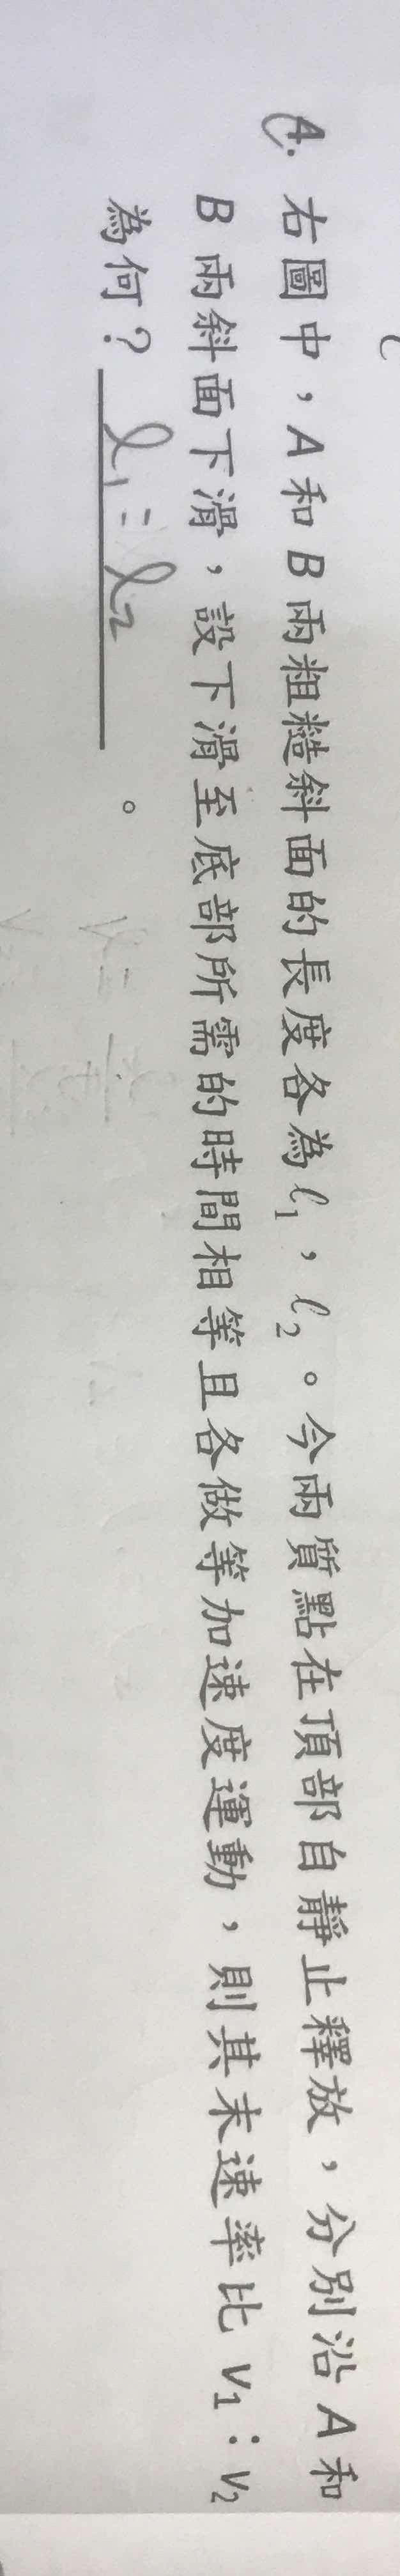 4. 右圖中，A 和 B 兩粗糙斜面的長度各為 ℓ₁，ℓ₂。今兩質點在頂部自靜止釋放，分別沿 A 和
B 兩斜面下滑，設下滑至底部所需的時間相等且各做等加速度運動，則其末速率比 v₁：v₂
為何？ ℓ₁：ℓ₂ 。